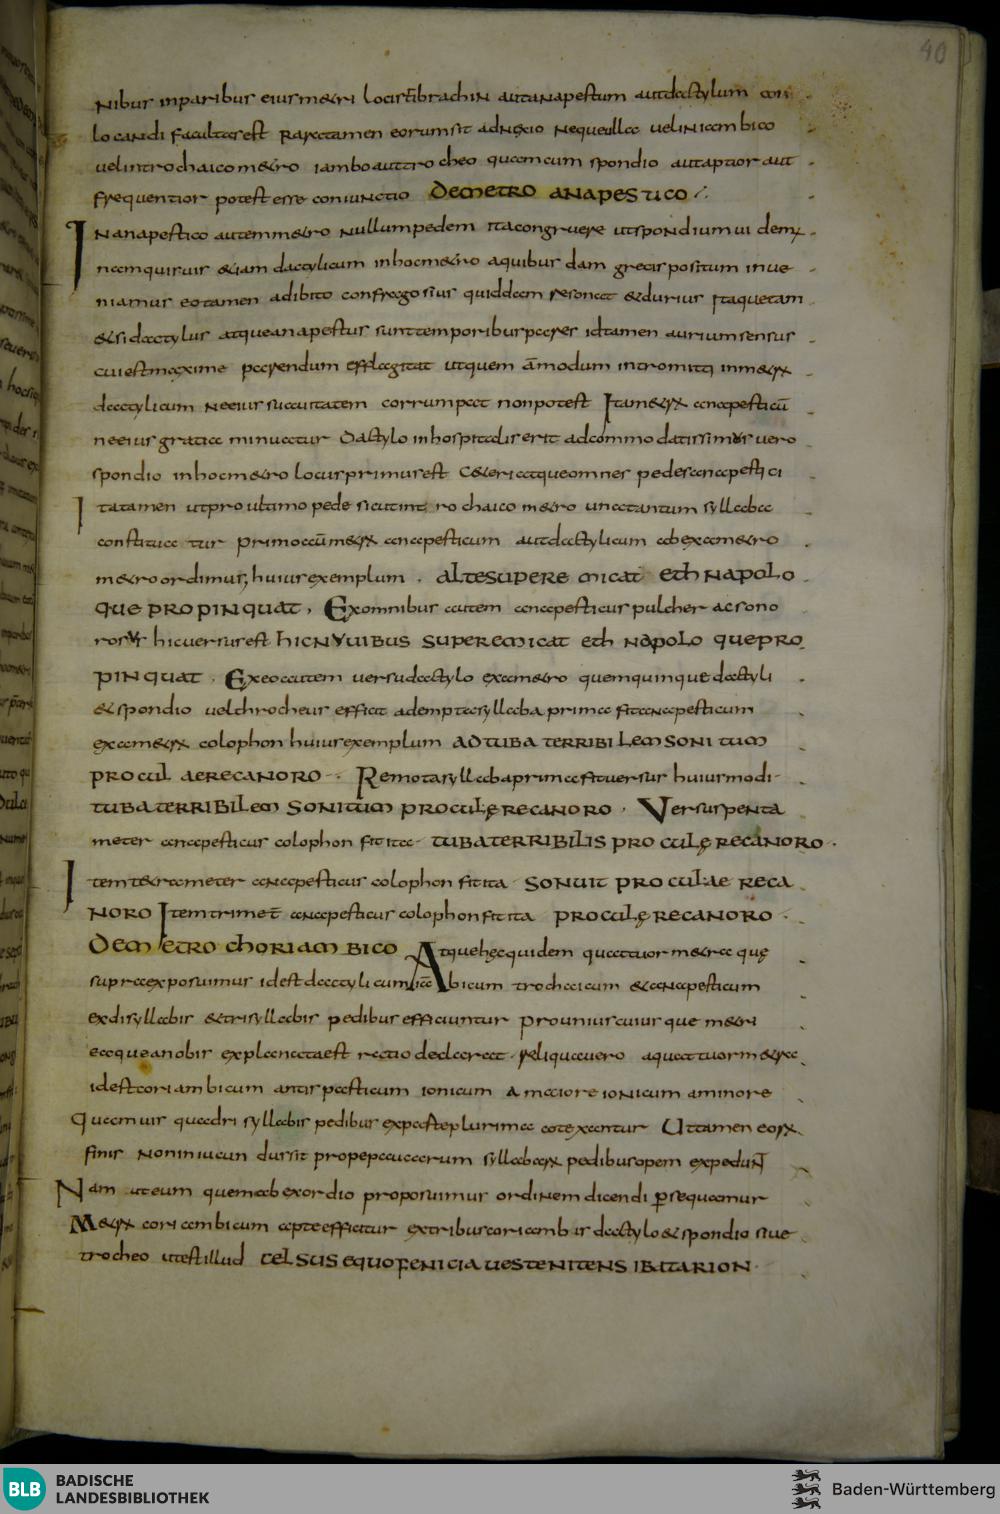 40
nibus inparibus eius metri locis tribrachin aut anapestum aut dactylum con
locandi facultas est Rarestamen eorum sit adnexio neque illa uel in iambico
uel in trochaico metro iambo aut trocheo quam cum spondio aut aptior aut
frequentior potest esse coniunctio DE METRO ANAPESTICO
In anapestico autem metro nullum pedem ita congruere ut spondium uidemꝰ
namquisuis etiam dactylicum in hoc metro a quibusdam grecis positum inue
niamus eo tamen adibito confragosius quiddam resonat et durius Itaque tam
etsi dactylus atque anapestus sunt temporibus pares id tamen aurium sensus
cui est maxime parendum efflagitat ut quem ammodum intromitti in metrꝝ
dactylicum ne eius sucuitatem corrumpat non potest Ita metrꝝ anapesticū
ne eius gratia minuatur Dactylo inhospitalis erit adcommodatissimus uero
spondio in hoc metro locus primus est Ceteri atque omnes pedes anapestici
Ita tamen ut pro ultimo pede sicut in trochaico metro una tantum syllaba
constitua tur primo cū metrꝝ anapesticum aut dactylicum ab exametro
metro ordimur, huius exemplum . ALTE SUPERE MICAT ETHNAPOLO
QUE PROPINQUAT, Ex omnibus autem anapesticus pulcher ac sono
rosus hic uersus est HIC NUUIBUS SUPEREMICAT ETHNAPOLO QUE PRO
PINQUAT. Ex eo autem uersu dactylo exametro quem quinque dactyli
et spondio uel throcheus efficit adempta syllaba prima fit anapesticum
exametrꝝ colophon huius exemplum AD TUBA TERRIBILEM SONITUM
PROCUL AERE CANORO Remota syllaba prima fit uersus huiusmodi
TUBA TERRIBILEM SONITUM PROCUL ĘRE CANORO . Uersus penta
meter anapesticus colophon fit ita TUBA TERRIBILIS PROCUL ĘRE CANORO .
Item tetrameter anapesticus colophon fit ita SONUIT PROCUL AERE CA
NORO Item trimet̄ anapesticus colophon fit ita PROCUL ĘRE CANORO
DE METRO CHORIAMBICO Atque hęc quidem quattuor metra quę
supra exposuimus id est dactylicum Iābicum trochaicum et anapesticum
ex disyllabis et trisyllabis pedibus efficiuntur pro unius cuiusque metri
eaque a nobis explanata est ratio declarat. reliqua uero a quattuor metra
id est coriambicum antispasticum ionicum a maiore ionicum a minore
Quamuis quadrisyllabis pedibus expecste plurima cotexantur Ut tamen eorꝝ
finis non iniucundus sit prope paucarum syllabarꝝ pedibus opem expedunt
Nam ut eum quem ab exordio proposuimus ordinem dicendi ꝑsequamur
Metrꝝ coriambicum apte efficitur ex tribus coriambis dactylo et spondio siue
trocheo ut est illud CELSUS EQUO FENICIA UESTE NITENS IBAT ARION
BLB BADISCHE
LANDESBIBLIOTHEK
Baden-Württemberg